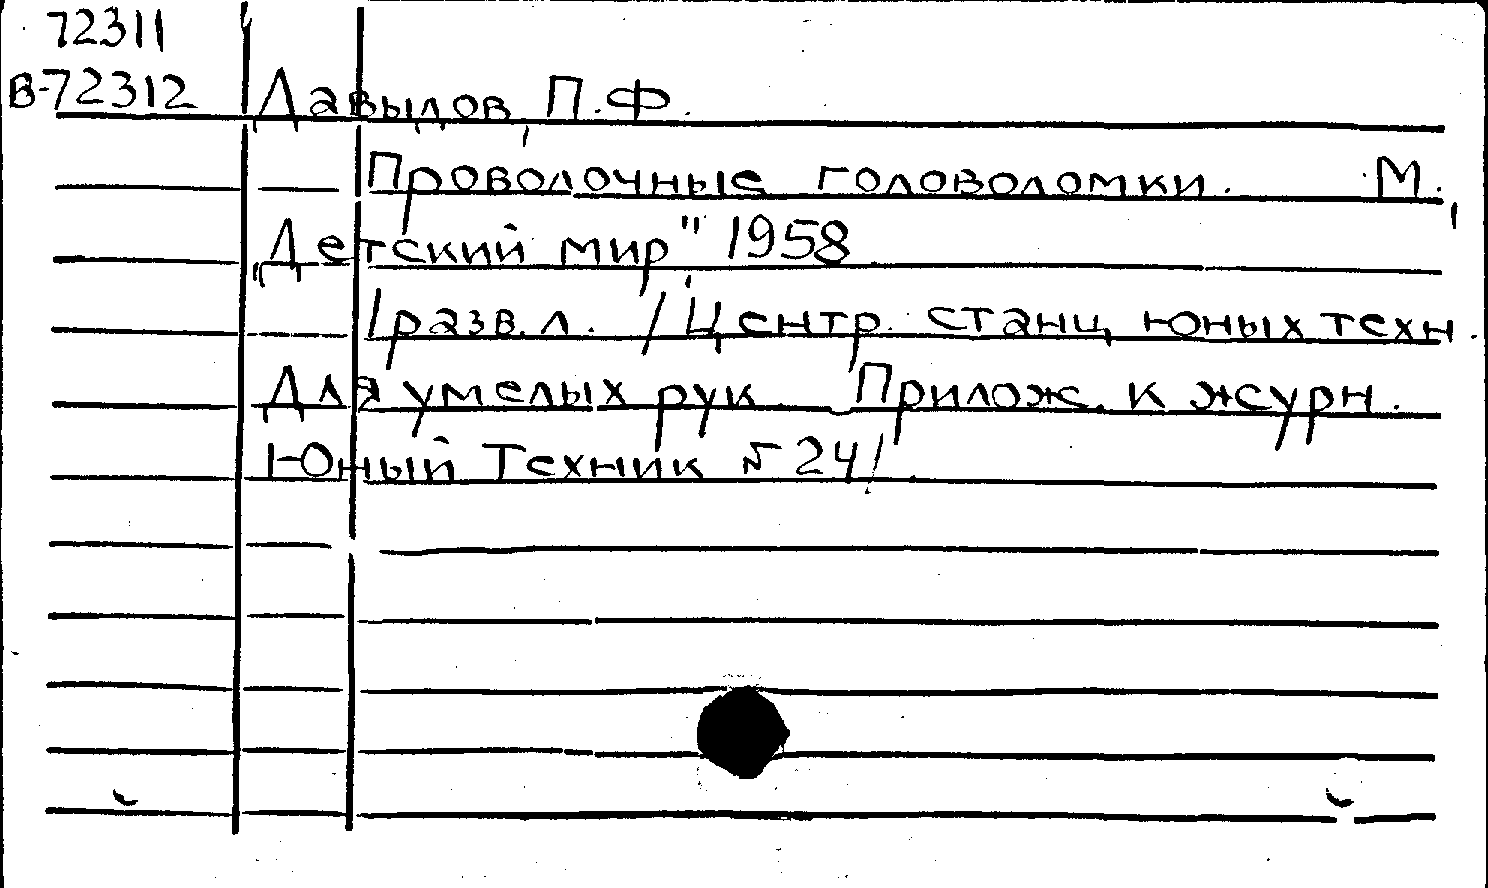 72311
В-72312 Давыдов, П.Ф.
Проволочные головоломки. М.,
"Детский мир" 1958
1 разв. л. /Центр. станц. юных техн.
Для умелых рук Прилож. к журн.
Юный Техник № 24/